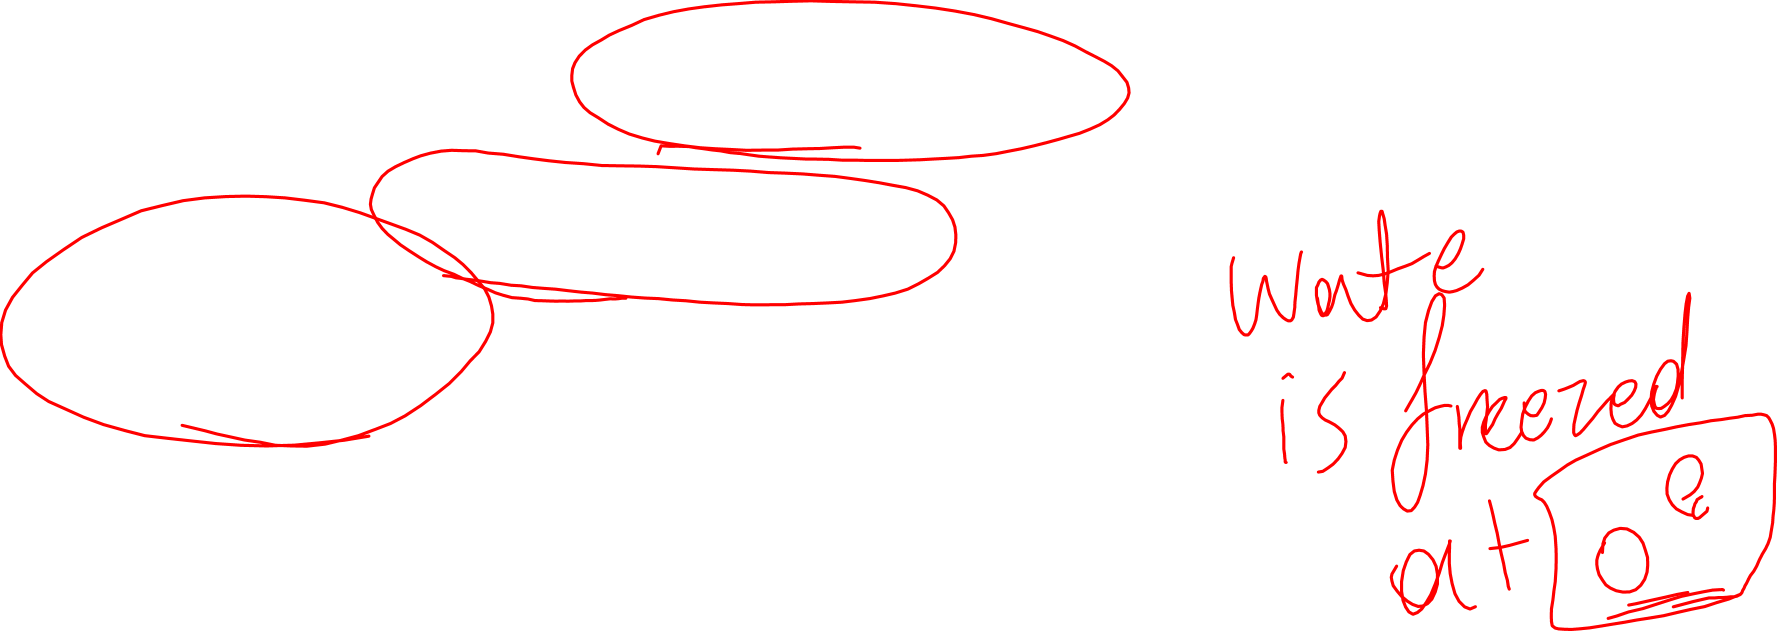 wate
is freezed
at 0